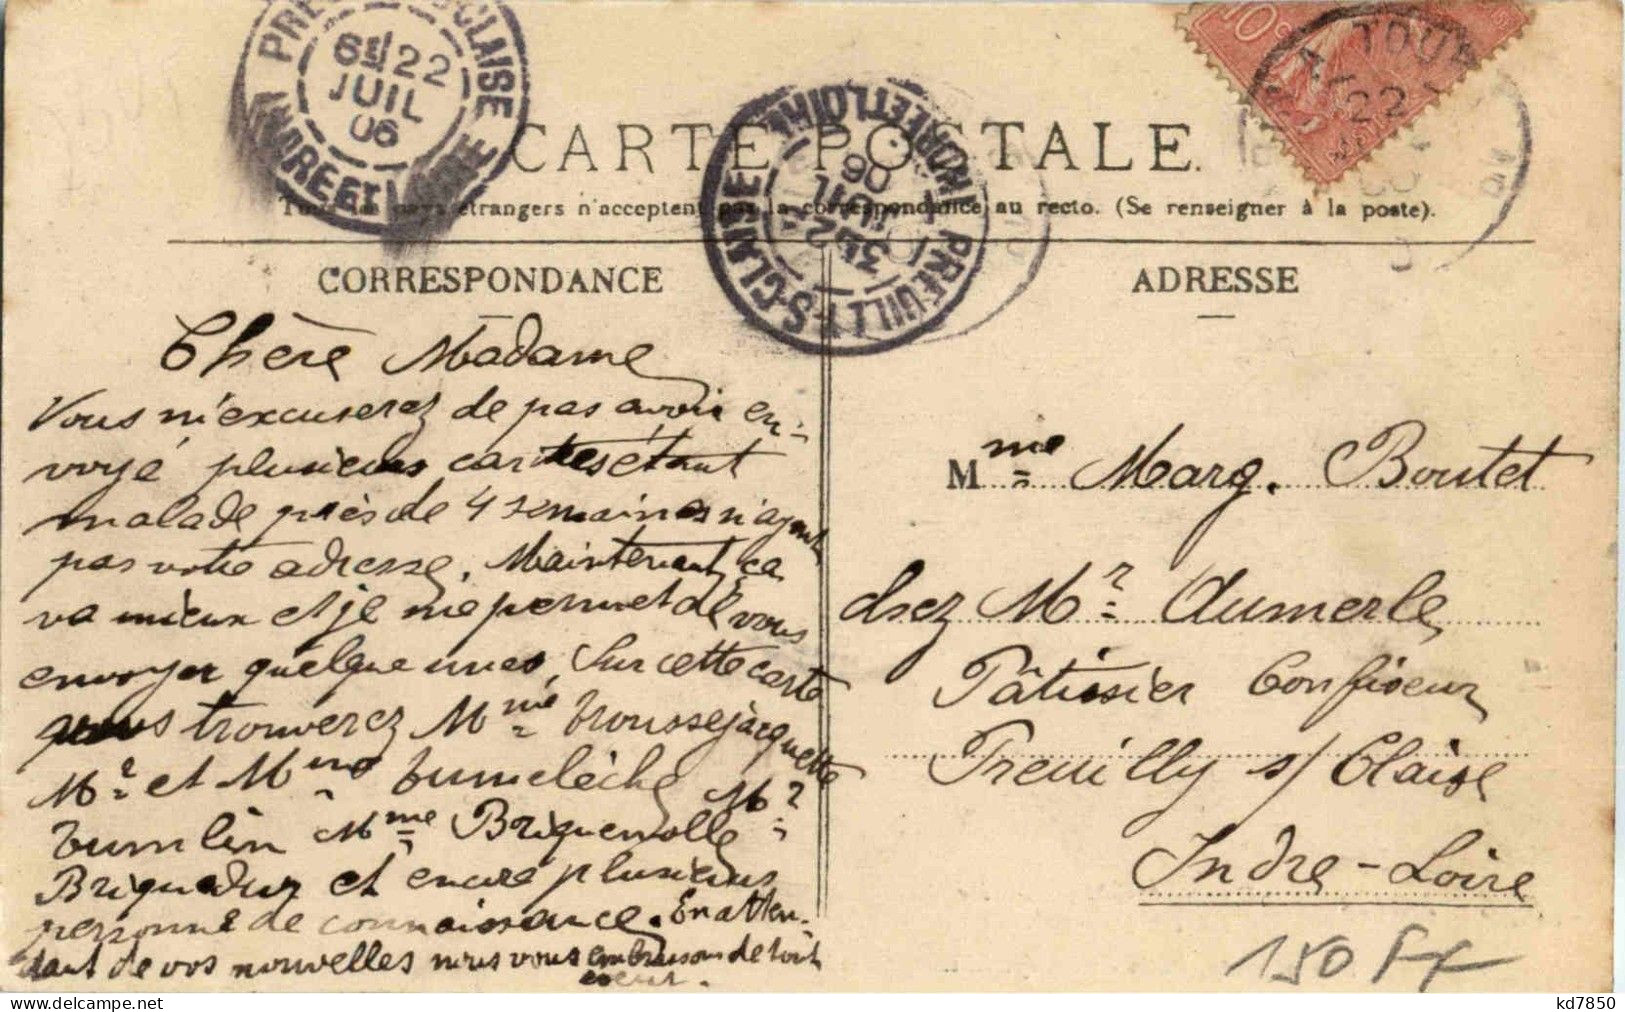 PREUILLY-S-CLAISE
INDRE ET LOIRE
6E 22
JUIL
06
PREUILLY-S-CLAISE
INDRE ET LOIRE
JUIL
06
10c
A TOURS
22
CARTE POSTALE.
Tous les pays étrangers n'acceptent pas la correspondance au recto. (Se renseigner à la poste).
CORRESPONDANCE
Chère Madame
Vous m'excuserez de pas avoir en-
voyé plusieurs cartes étant
malade près de 4 semaines n'ayant
pas votre adresse. Maintenant ça
va mieux et je me permet de vous
envoyer quelque unes, Sur cette carte
vous trouverez Mme troussejacquette
Mr et Mme tumelèche Mr
tumlin Mme Briquemolle
Briquedur et encore plusieurs
personne de connaissance. En atten-
dant de vos nouvelles nous vous embrassons de tout
coeur.
ADRESSE
Mme Marg. Boutet
chez Mr Aumerle
Pâtissier Confiseur
Preuilly s/ Claise
Indre-Loire
150 FF
kd7850